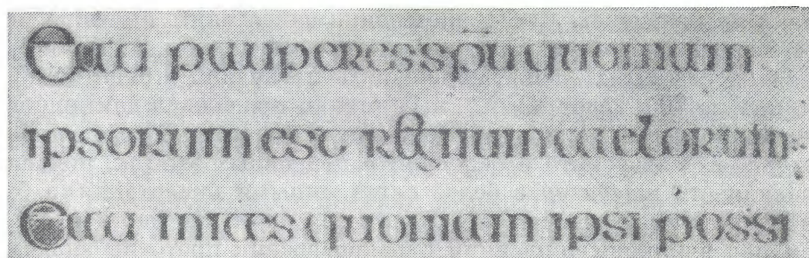 Eati pauperes sp̄u quoniam
ipsorum est regnum caelorum
Eati mites quoniam ipsi possi